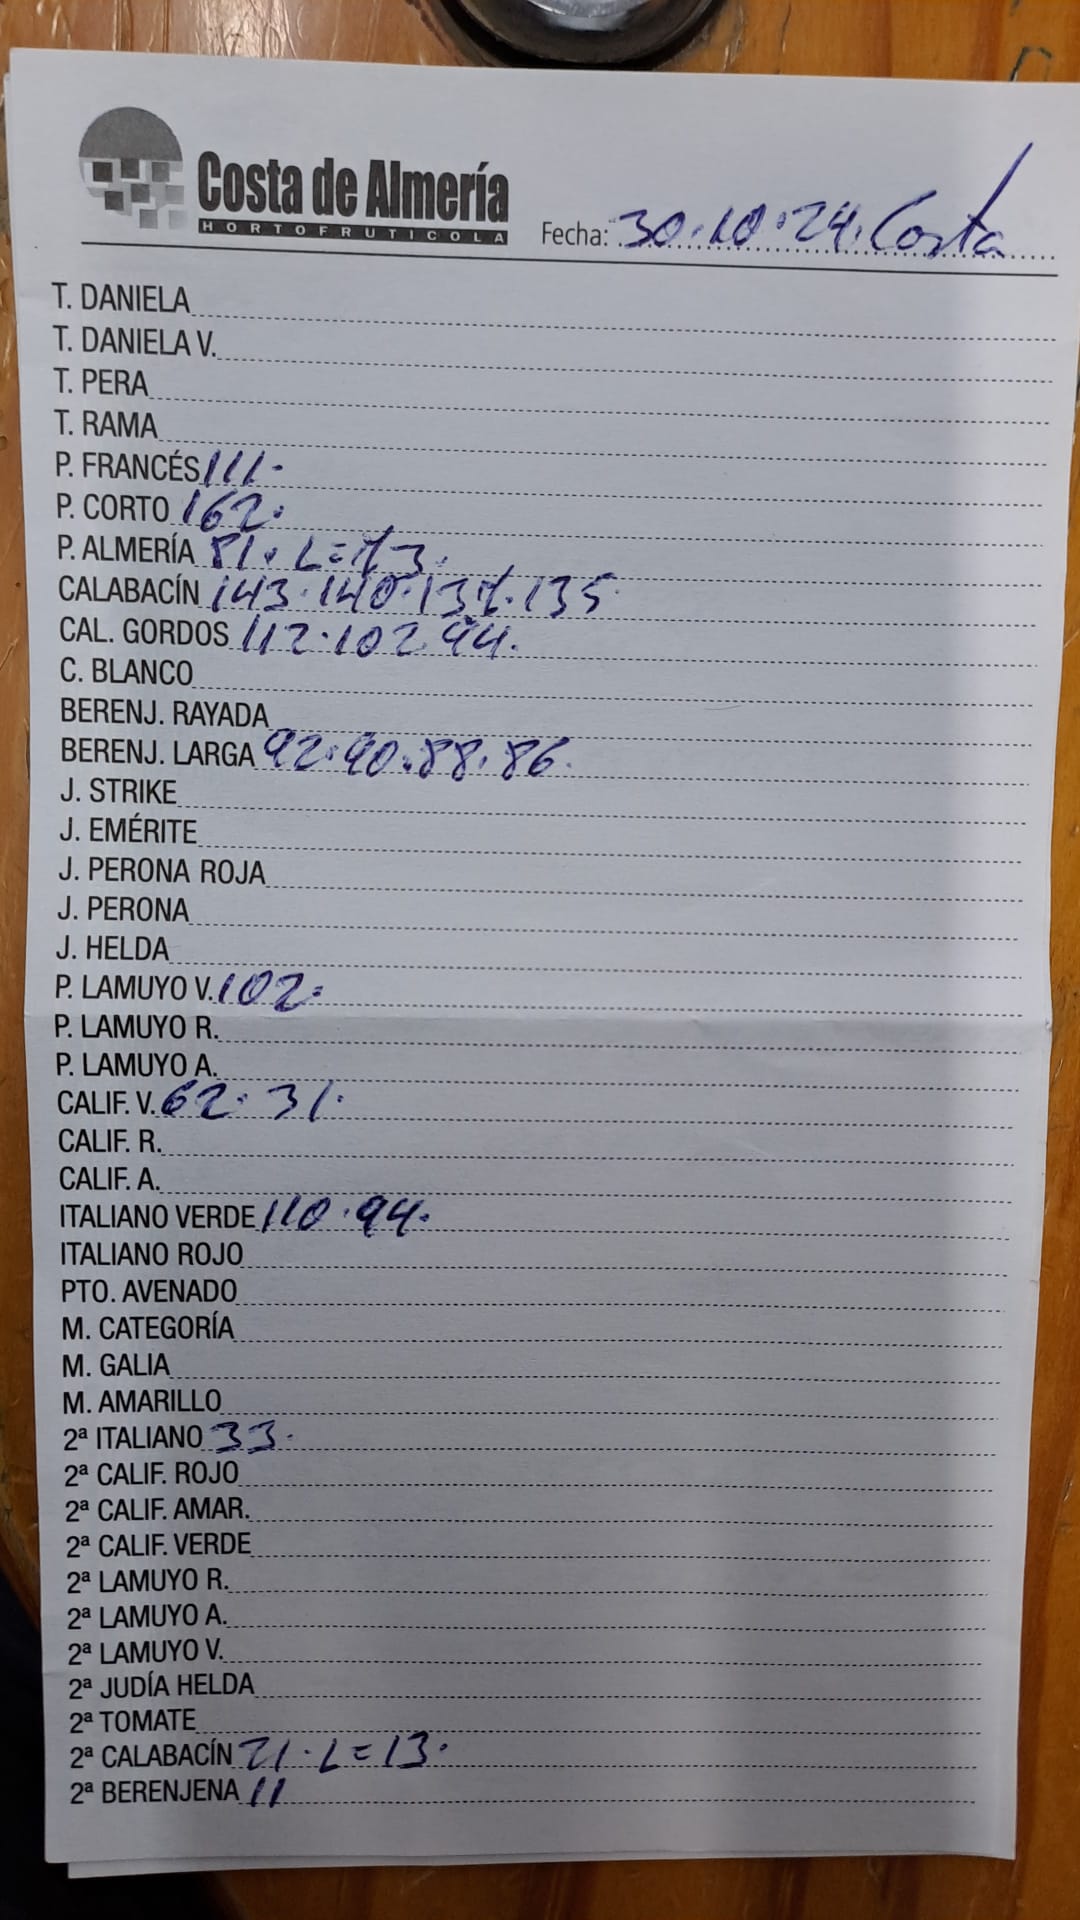 Costa de Almería
HORTOFRUTICOLA
Fecha: 30.10.24. Costa
T. DANIELA
T. DANIELA V.
T. PERA
T. RAMA
P. FRANCÉS 111.
P. CORTO 162.
P. ALMERÍA 81. L=73.
CALABACÍN 143.140.137.135
CAL. GORDOS 112.102 94.
C. BLANCO
BERENJ. RAYADA
BERENJ. LARGA 92.90.88.86.
J. STRIKE
J. EMÉRITE
J. PERONA ROJA
J. PERONA
J. HELDA
P. LAMUYO V. 102.
P. LAMUYO R.
P. LAMUYO A.
CALIF. V. 62. 31.
CALIF. R.
CALIF. A.
ITALIANO VERDE 110.94.
ITALIANO ROJO
PTO. AVENADO
M. CATEGORÍA
M. GALIA
M. AMARILLO
2ª ITALIANO 33.
2ª CALIF. ROJO
2ª CALIF. AMAR.
2ª CALIF. VERDE
2ª LAMUYO R.
2ª LAMUYO A.
2ª LAMUYO V.
2ª JUDÍA HELDA
2ª TOMATE
2ª CALABACÍN 21. L=13.
2ª BERENJENA 11